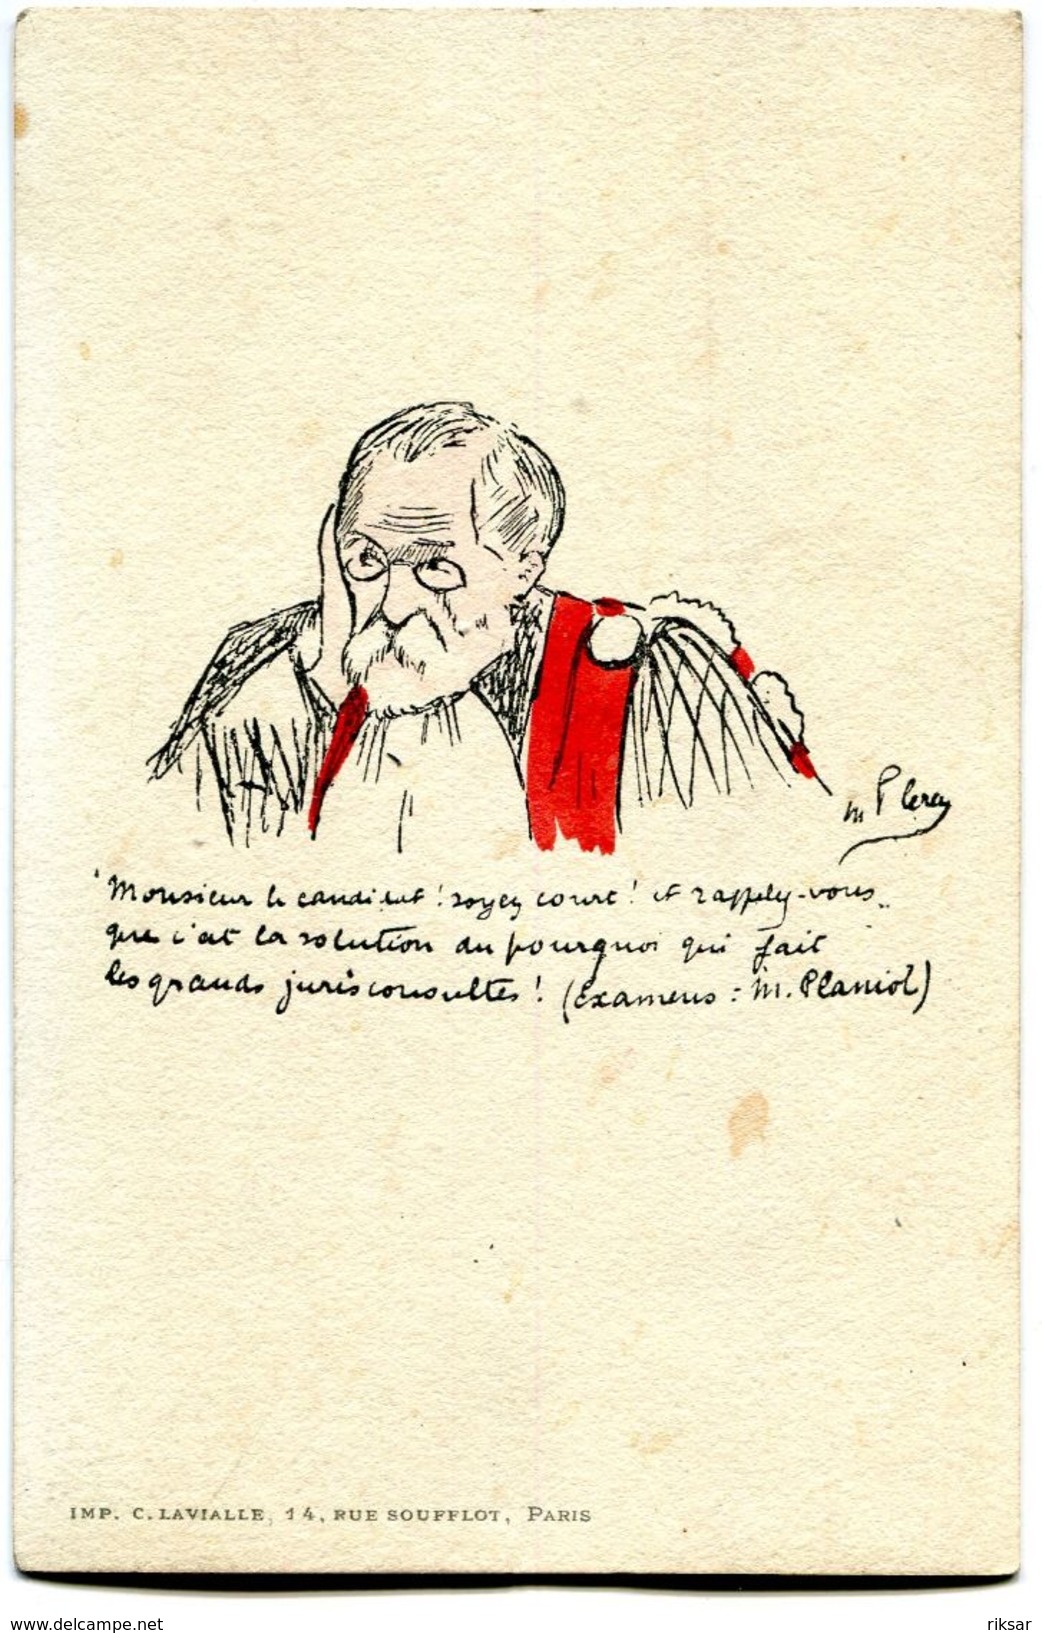 "Monsieur le candidat ! soyez court ! et rappelez-vous
que c'est la solution du pourquoi qui fait
les grands jurisconsultes ! (Examens : M. Planiol)
IMP. C. LAVIALLE, 14, RUE SOUFFLOT, PARIS
www.delcampe.net
riksar